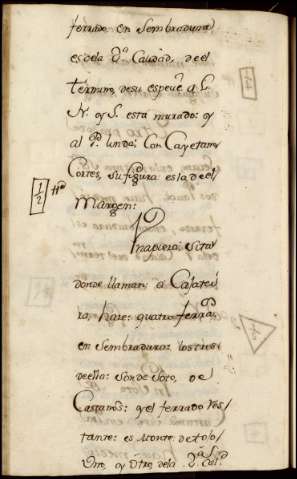 ferrado en Sembradura
es dela 2ª Calidad, de el
termino, desu espeue a L.
N. y S. esta murado: y
al P. linda: Con Cayetano
Cortes, su figura es la de el
Margen:
1/2 ffº
Una pieza: Sita
donde llaman el Casatei
ro, haze: quatro ferrados
en Sembradura: los tres
de ellos: Son de Soto, de
Castaños: y el ferrado res/
tante: es Monte de tojo/
Uno, y Otro, dela 2ª Calª